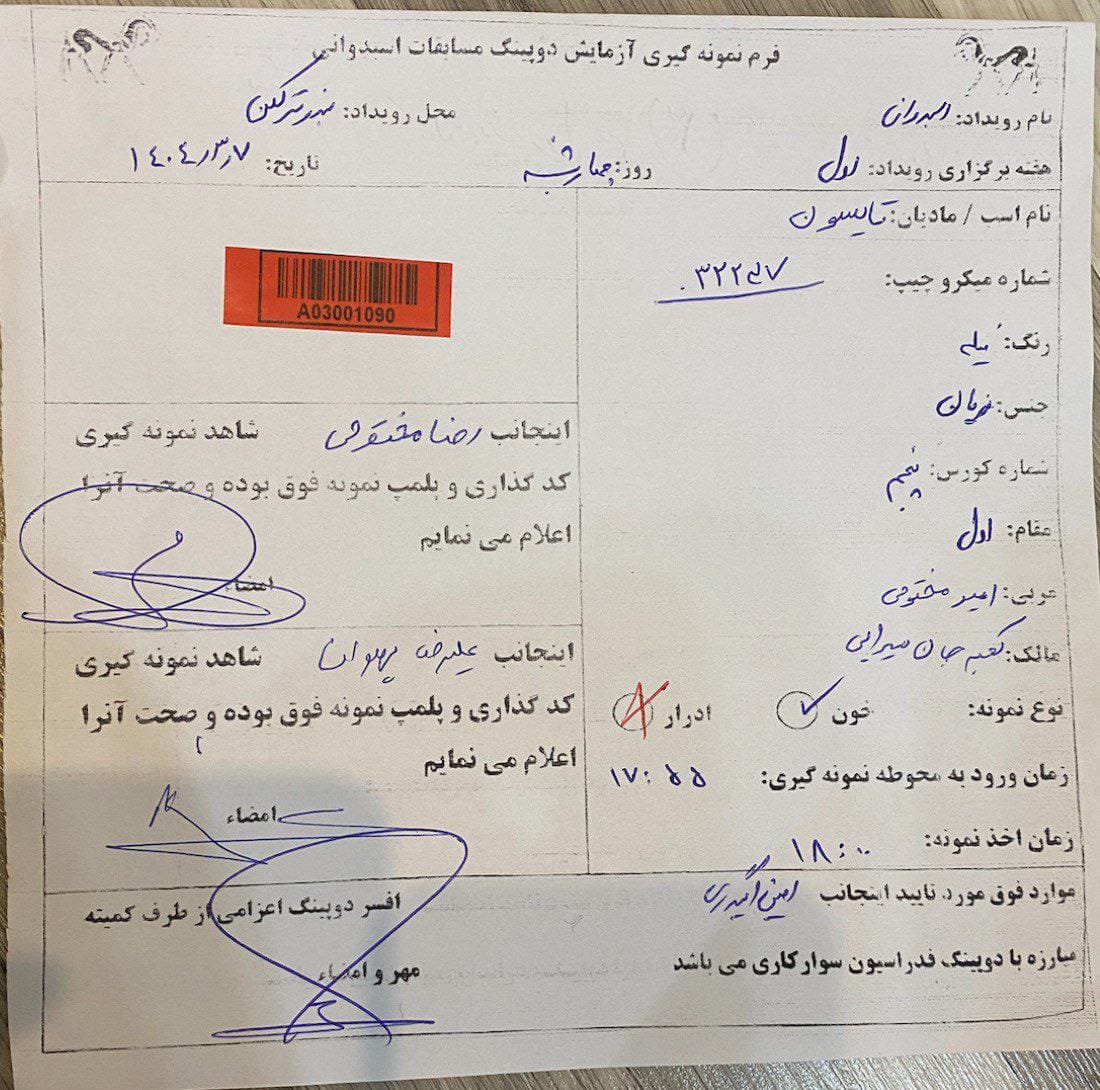 فرم نمونه گیری آزمایش دوپینگ مسابقات اسبدوانی
نام رویداد: اسبدوانی
محل رویداد: بندرترکمن
هفته برگزاری رویداد: اول
روز: چهارشنبه
تاریخ: ۱۴۰۴,۳,۷
نام اسب / مادیان: تایسون
شماره میکرو چیپ:
رنگ: نیله
جنس: نریان
شماره کورس: پنجم
مقام: اول
مربی: امید مختومی
مالک: کعبه جان میرابی
نوع نمونه: خون ادرار
زمان ورود به محوطه نمونه گیری: ۱۷:۵۵
زمان اخذ نمونه: ۱۸:۰۰
A03001090
اینجانب رضا مختومی شاهد نمونه گیری
کد گذاری و پلمپ نمونه فوق بوده و صحت آنرا
اعلام می نمایم
امضاء
اینجانب علیرضا پهلوان شاهد نمونه گیری
کد گذاری و پلمپ نمونه فوق بوده و صحت آنرا
اعلام می نمایم
امضاء
موارد فوق مورد تایید اینجانب
افسر دوپینگ اعزامی از طرف کمیته
مبارزه با دوپینگ فدراسیون سوارکاری می باشد
مهر و امضاء